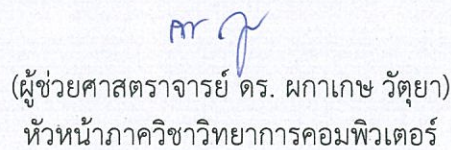 (ผู้ช่วยศาสตราจารย์ ดร. ผกาเกษ วัตุยา)
หัวหน้าภาควิชาวิทยาการคอมพิวเตอร์